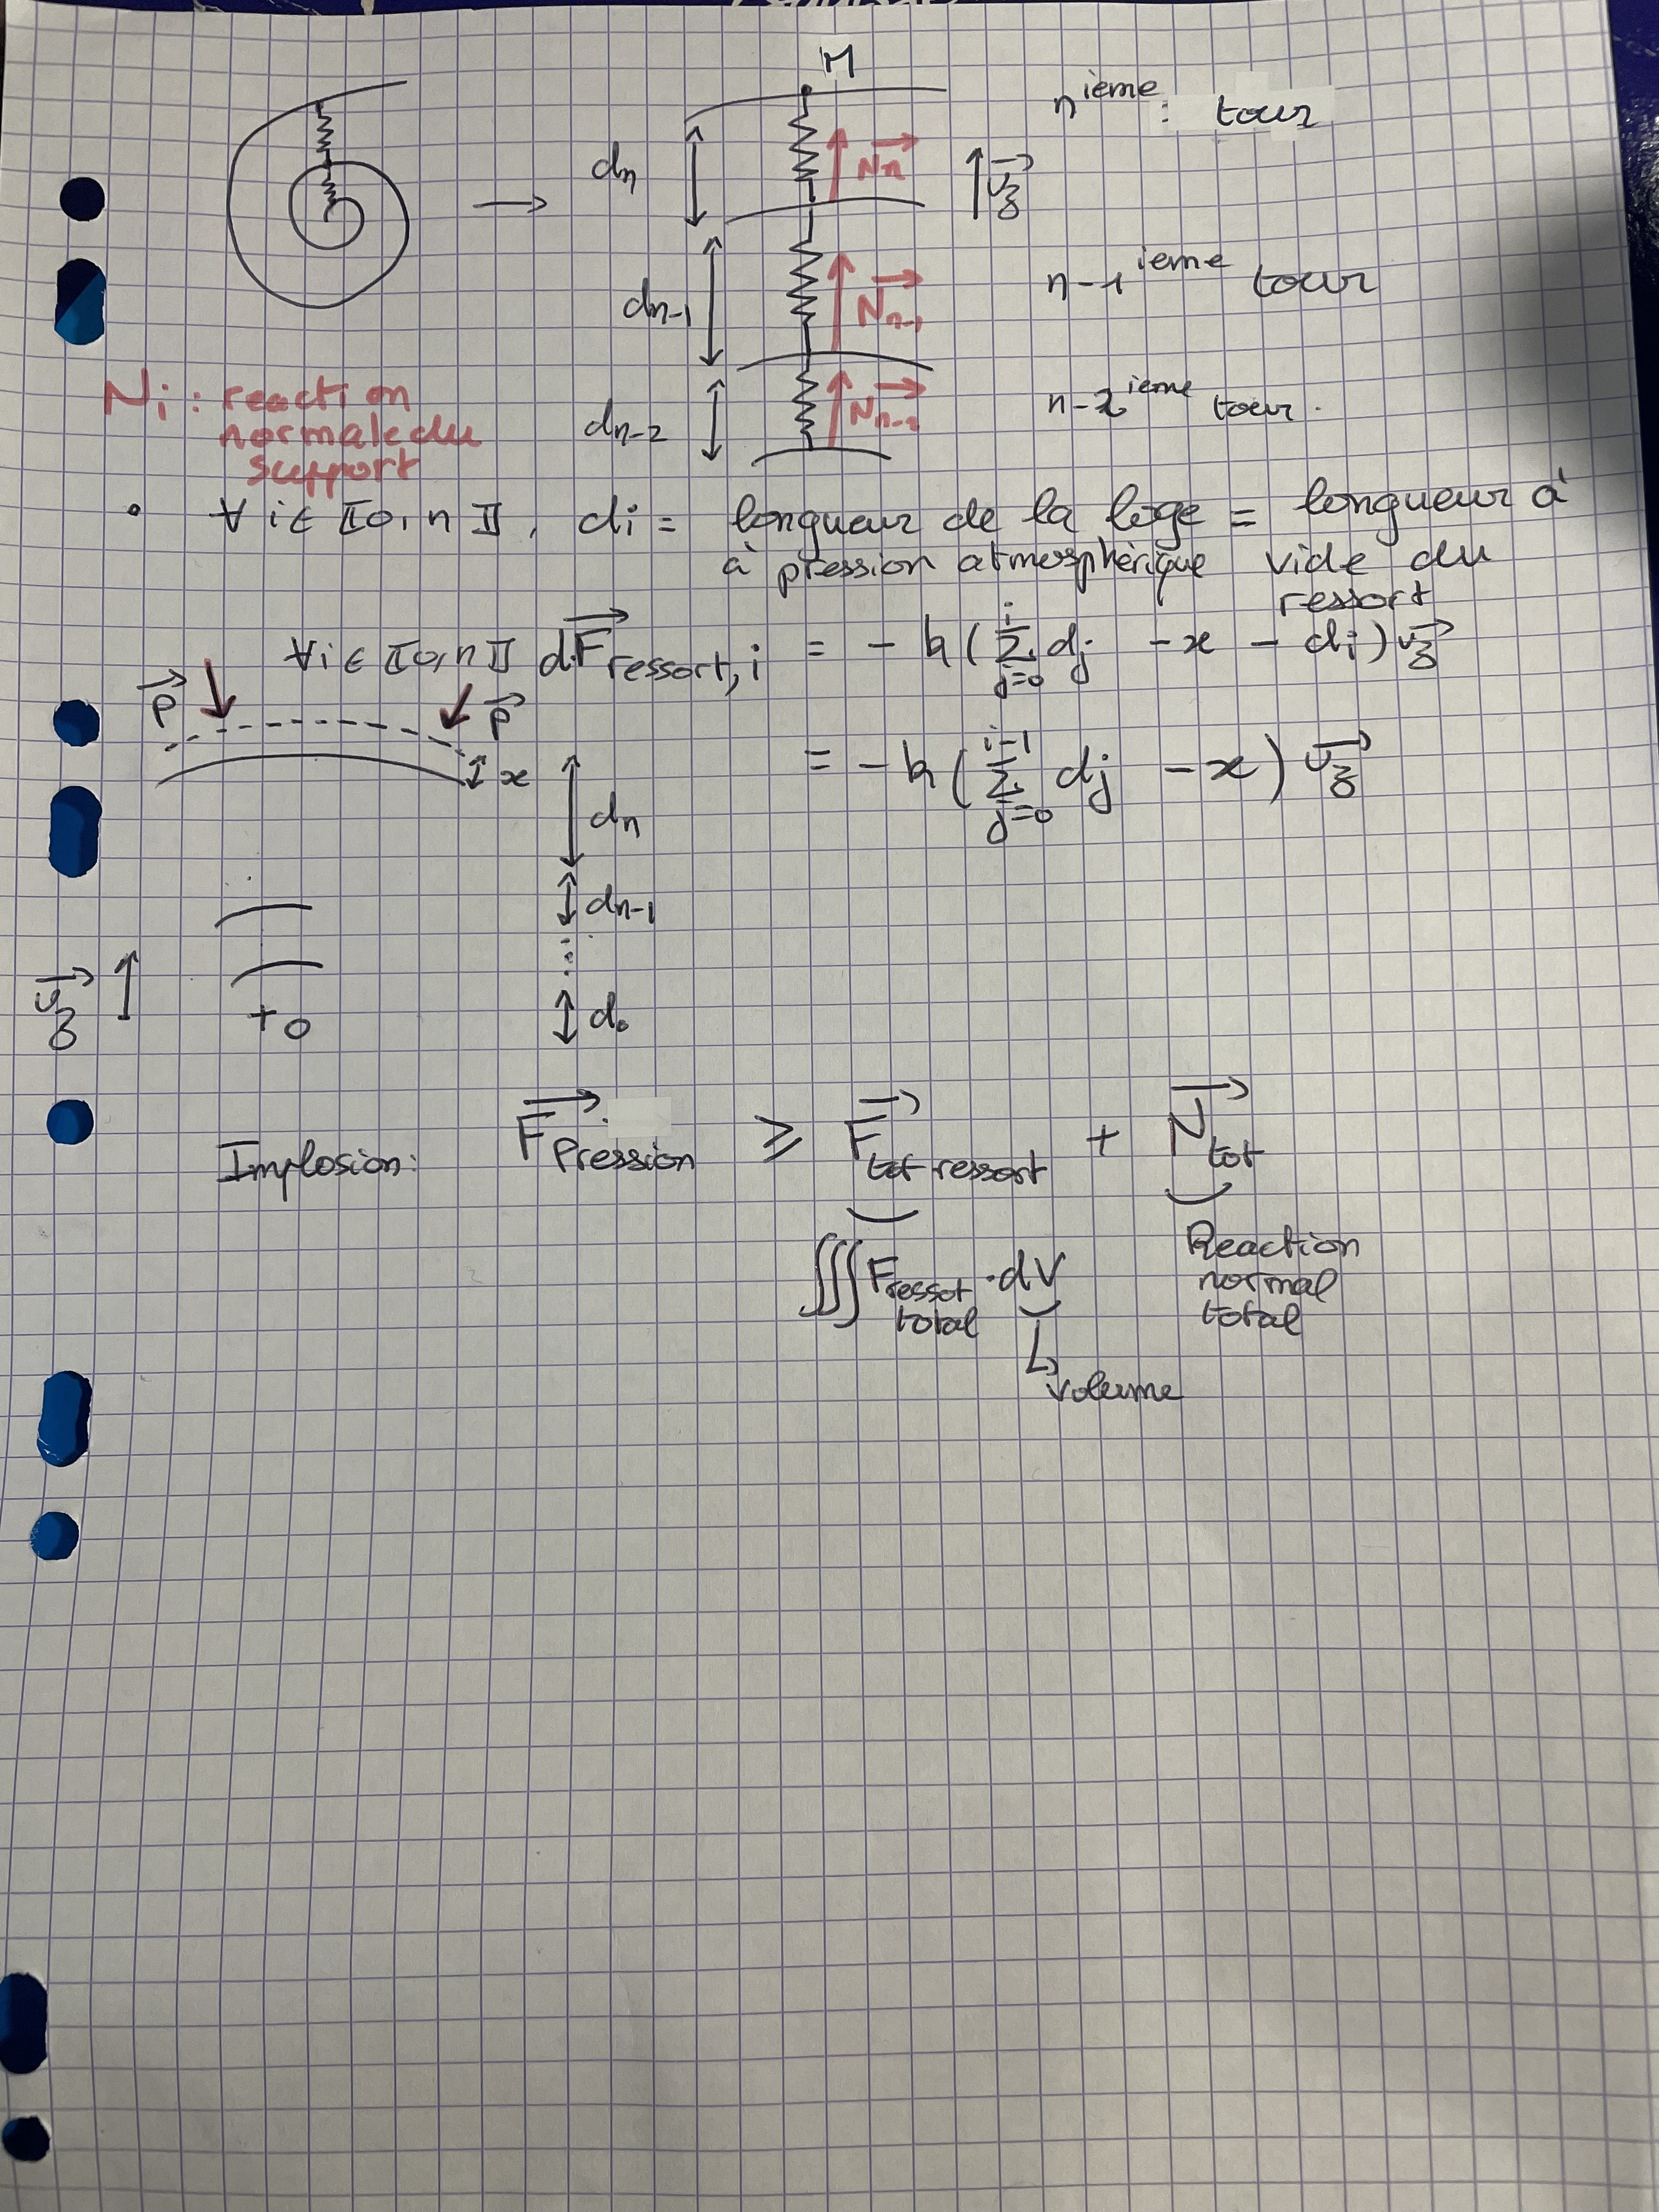 M
nieme : tour
dn
Nn
uz
dn-1
Nn-1
n-1 ieme tour
dn-2
Nn-2
n-2 ieme tour.
Ni : reaction
normale du
support
• ∀ i ∈ ⟦0, n⟧, di = longueur de la loge = longueur à
à pression atmosphèrique vide du
ressort
∀ i ∈ ⟦0, n⟧ dF ressort, i = - k ( Σ j=0 i dj - x - di ) uz
P P
= - k ( Σ j=0 i-1 dj - x ) uz
x
dn
dn-1
uz
+ 0
d0
Implosion: F Pression ≥ F tot ressort + N tot
∭ F ressot total . dV
Reaction
normal
total
volume